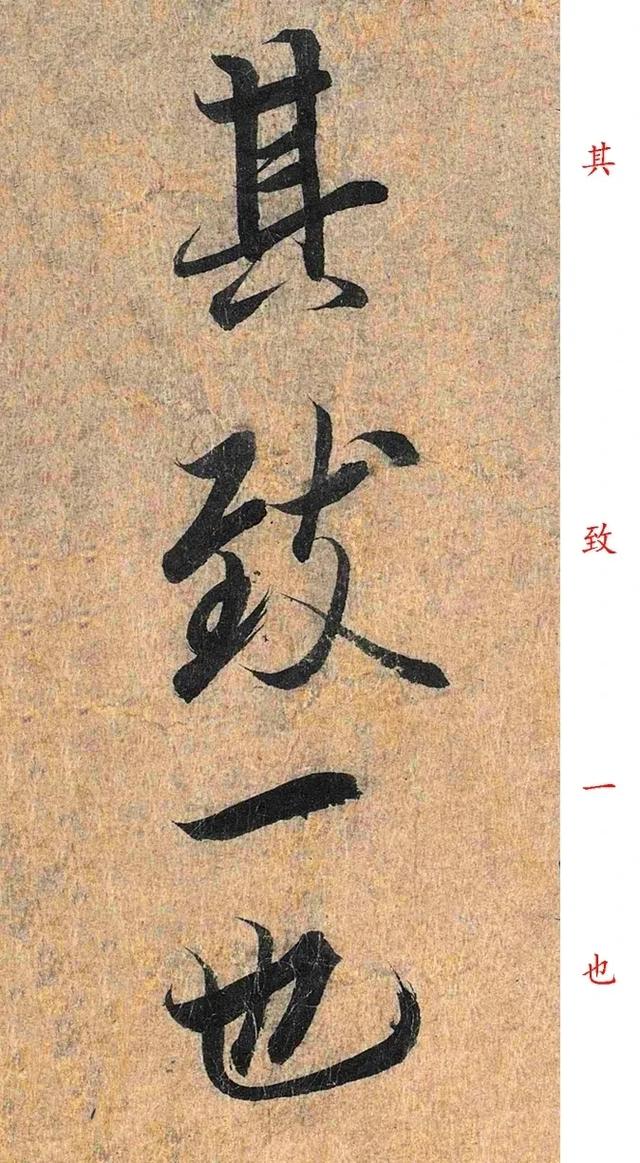 其致一也
其致一也